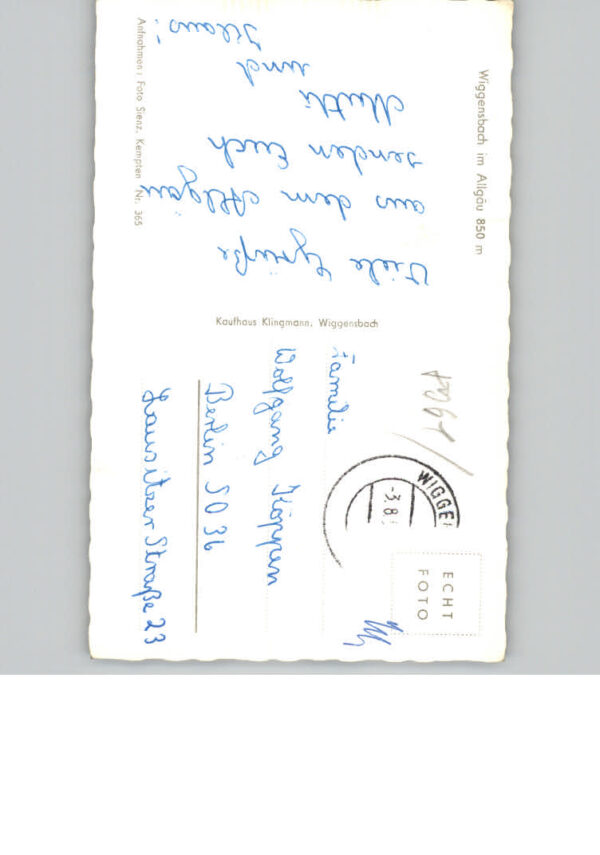 Wiggensbach im Allgäu 850 m
Viele Grüße
aus dem Allgäu
senden Euch
Mutti
und
Klaus!
Aufnahmen: Foto Sienz, Kempten Nr. 365
Kaufhaus Klingmann, Wiggensbach
1964
WIGGE
-3.8.
ECHT
FOTO
Familie
Wolfgang Höppen
Berlin SO 36
Lausitzer Straße 23